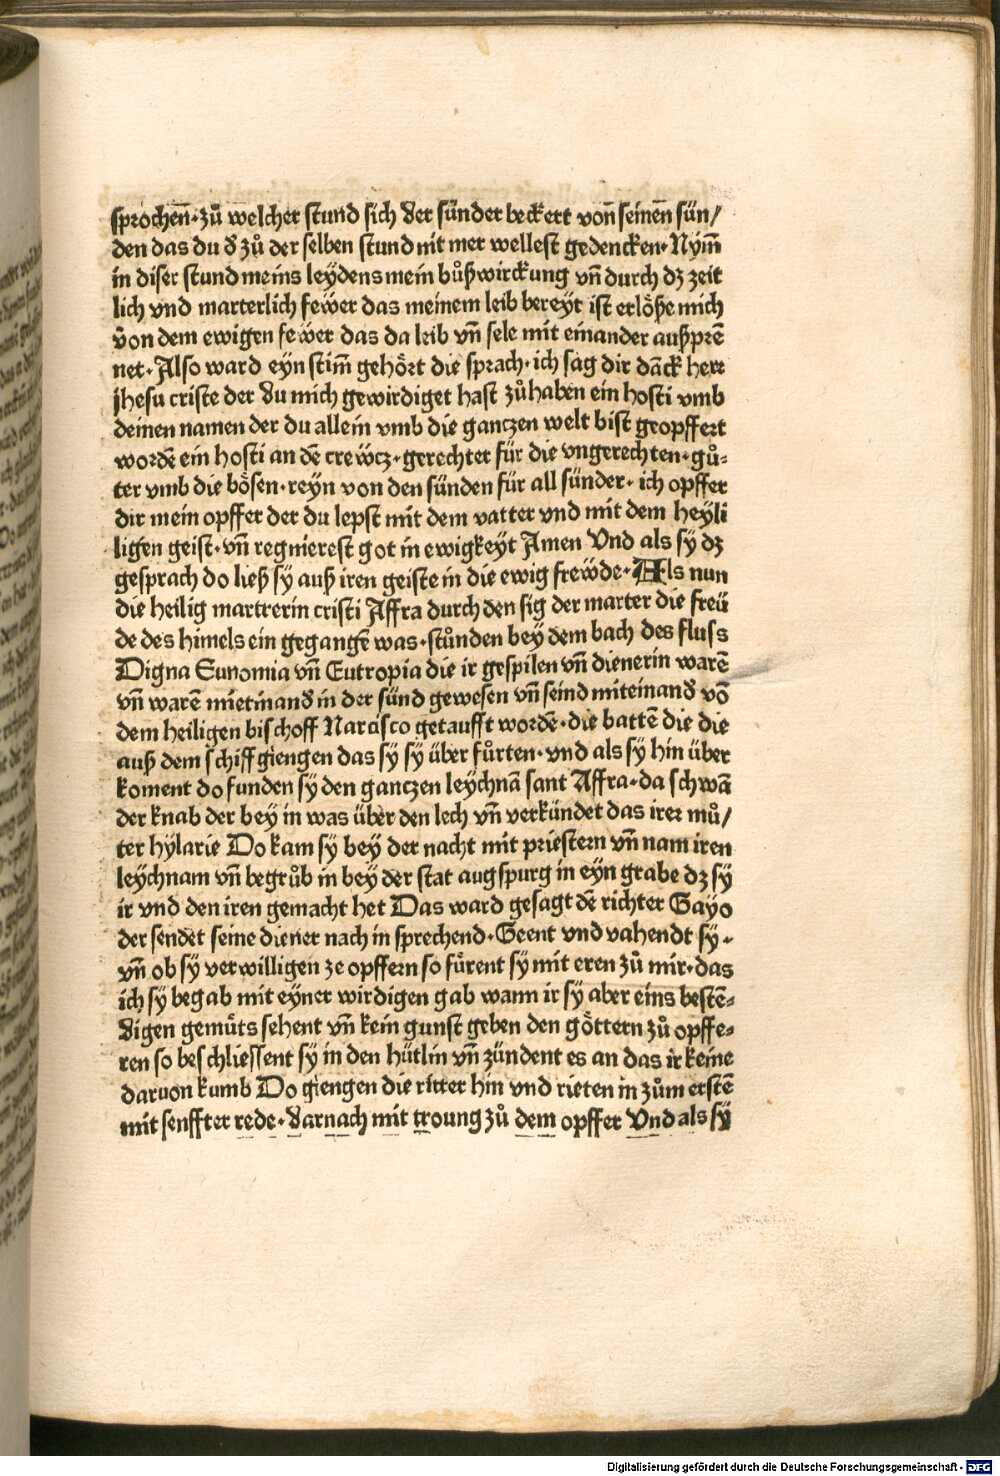 sprochen̄·zů welcher stund sich der sünder beckert von̄ seinen̄ sün/
den das du d̕ zů der selben stund nit mer wellest gedencken·Nym̄
in diser stund meins leÿdens mein bůßwirckung vn̄ durch dz zeit
lich vnd marterlich feẅer das meinem leib bereÿt ist erlöße mich
von dem ewigen feẅer das da leib vn̄ sele mit einander außprē
net·Also ward eyn stim̄ gehört die sprach·ich sag dir dāck herr
jhesu criste der du mich gewirdiget hast zůhaben ein hosti vmb
deinen namen der du allein vmb die ganczen welt bist geopffert
wordē ein hosti an dē creẅcz·gerechter für die vngerechten·gů-
ter vmb die bösen·reÿn von den sünden für all sünder·ich opffer
dir mein opffer der du lepst mit dem vatter vnd mit dem heÿli
ligen geist·vn̄ regnierest got in ewigkeÿt Amen Vnd als sÿ dz
gesprach do ließ sÿ auß iren geiste in die ewig freẅde·Als nun
die heilig martrerin cristi Affra durch den sig der marter die freü
de des himels ein gegangē was·stůnden beÿ dem bach des fluss
Digna Eunomia vn̄ Eutropia die ir gespilen vn̄ dienerin warē
vn̄ warē mietinand̕ in der sünd gewesen vn̄ seind miteinand̕ vō
dem heiligen bischoff Narcisco getaufft wordē·die battē die die
auß dem schiff giengen das sÿ sÿ über fůrten·vnd als sÿ hin über
koment do funden sÿ den ganczen leÿchnā sant Affra·da schwā
der knab der beÿ in was über den lech vn̄ verkündet das irer mů/
ter hÿlarie Do kam sÿ beÿ der nacht mit priestern vn̄ nam iren
leÿchnam vn̄ begrůb in beÿ der stat augspurg in eÿn grabe dz sÿ
ir vnd den iren gemacht het Das ward gesagt dē richter Gayo
der sendet seine diener nach in sprechend·Geent vnd vahendt sÿ·
vn̄ ob sÿ verwilligen ze opffern so fůrent sÿ mit eren zů mir·das
ich sÿ begab mit eÿner wirdigen gab wann ir sÿ aber eins bestē-
digen gemüts sehent vn̄ kein gunst geben den göttern zů opffe-
ren so beschliessent sÿ in den hütlin vn̄ zündent es an das ir keine
daruon kumb Do giengen die ritter hin vnd rieten in zům erstē
mit senffter rede·darnach mit troung zů dem opffer Vnd als sÿ
Digitalisierung gefördert durch die Deutsche Forschungsgemeinschaft - DFG